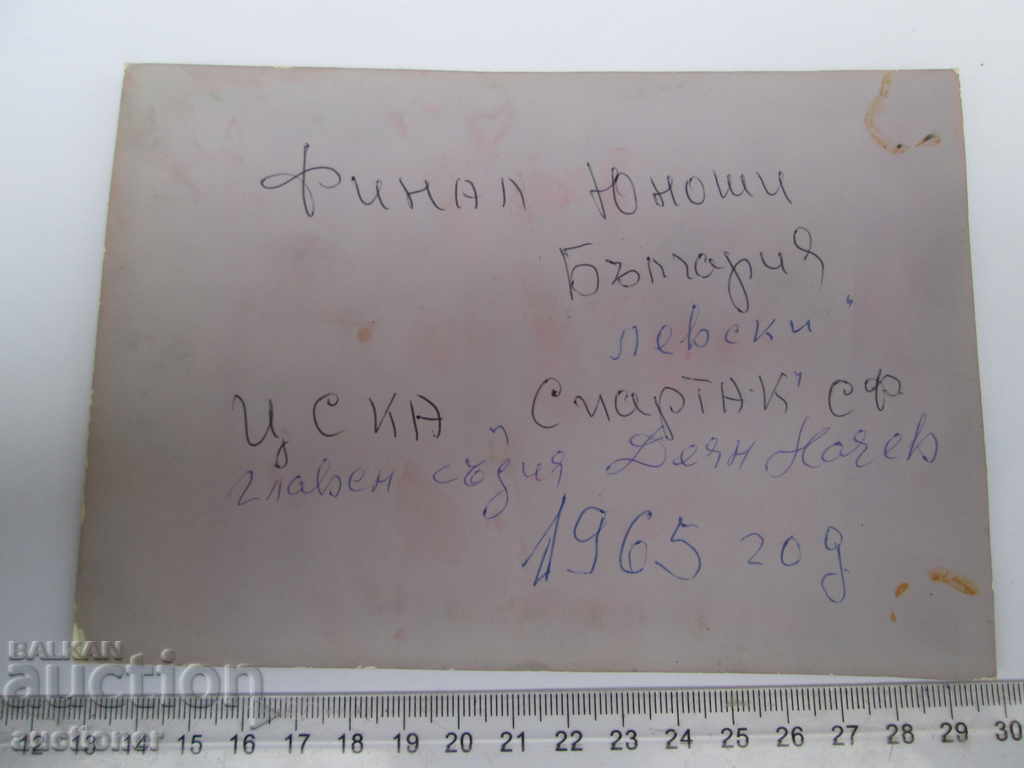 Финал Юноши
България
Левски"
ЦСКА „Спартак" СФ
главен съдия Деян Начев
1965 год
BALKAN
auction
auctioner
12 13 14 15 16 17 18 19 20 21 22 23 24 25 26 27 28 29 30